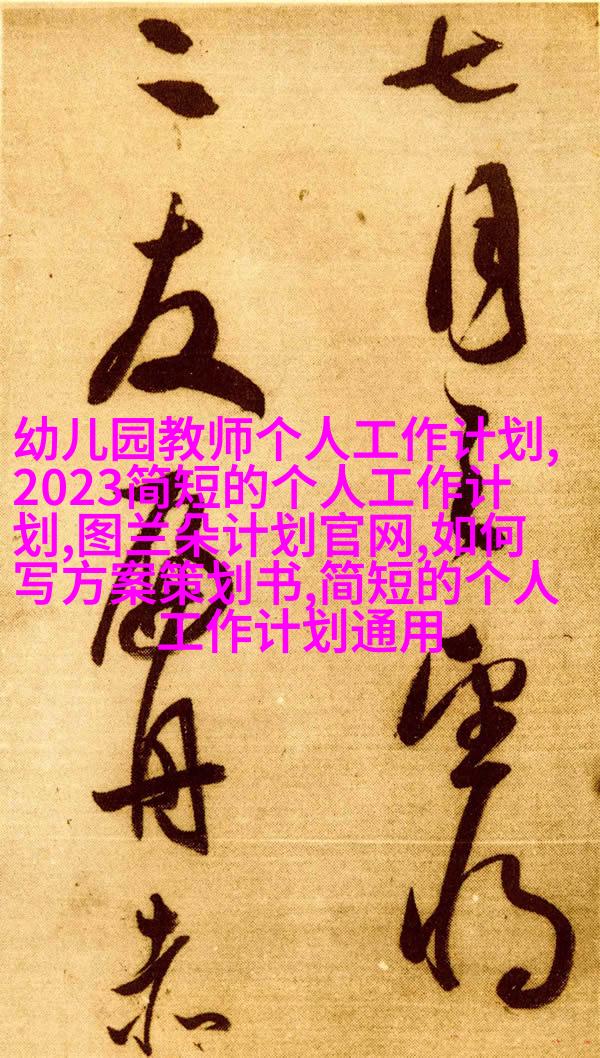 七月之望将
二友舟赤
幼儿园教师个人工作计划,
2023简短的个人工作计
划,图兰朵计划官网,如何
写方案策划书,简短的个人
工作计划通用